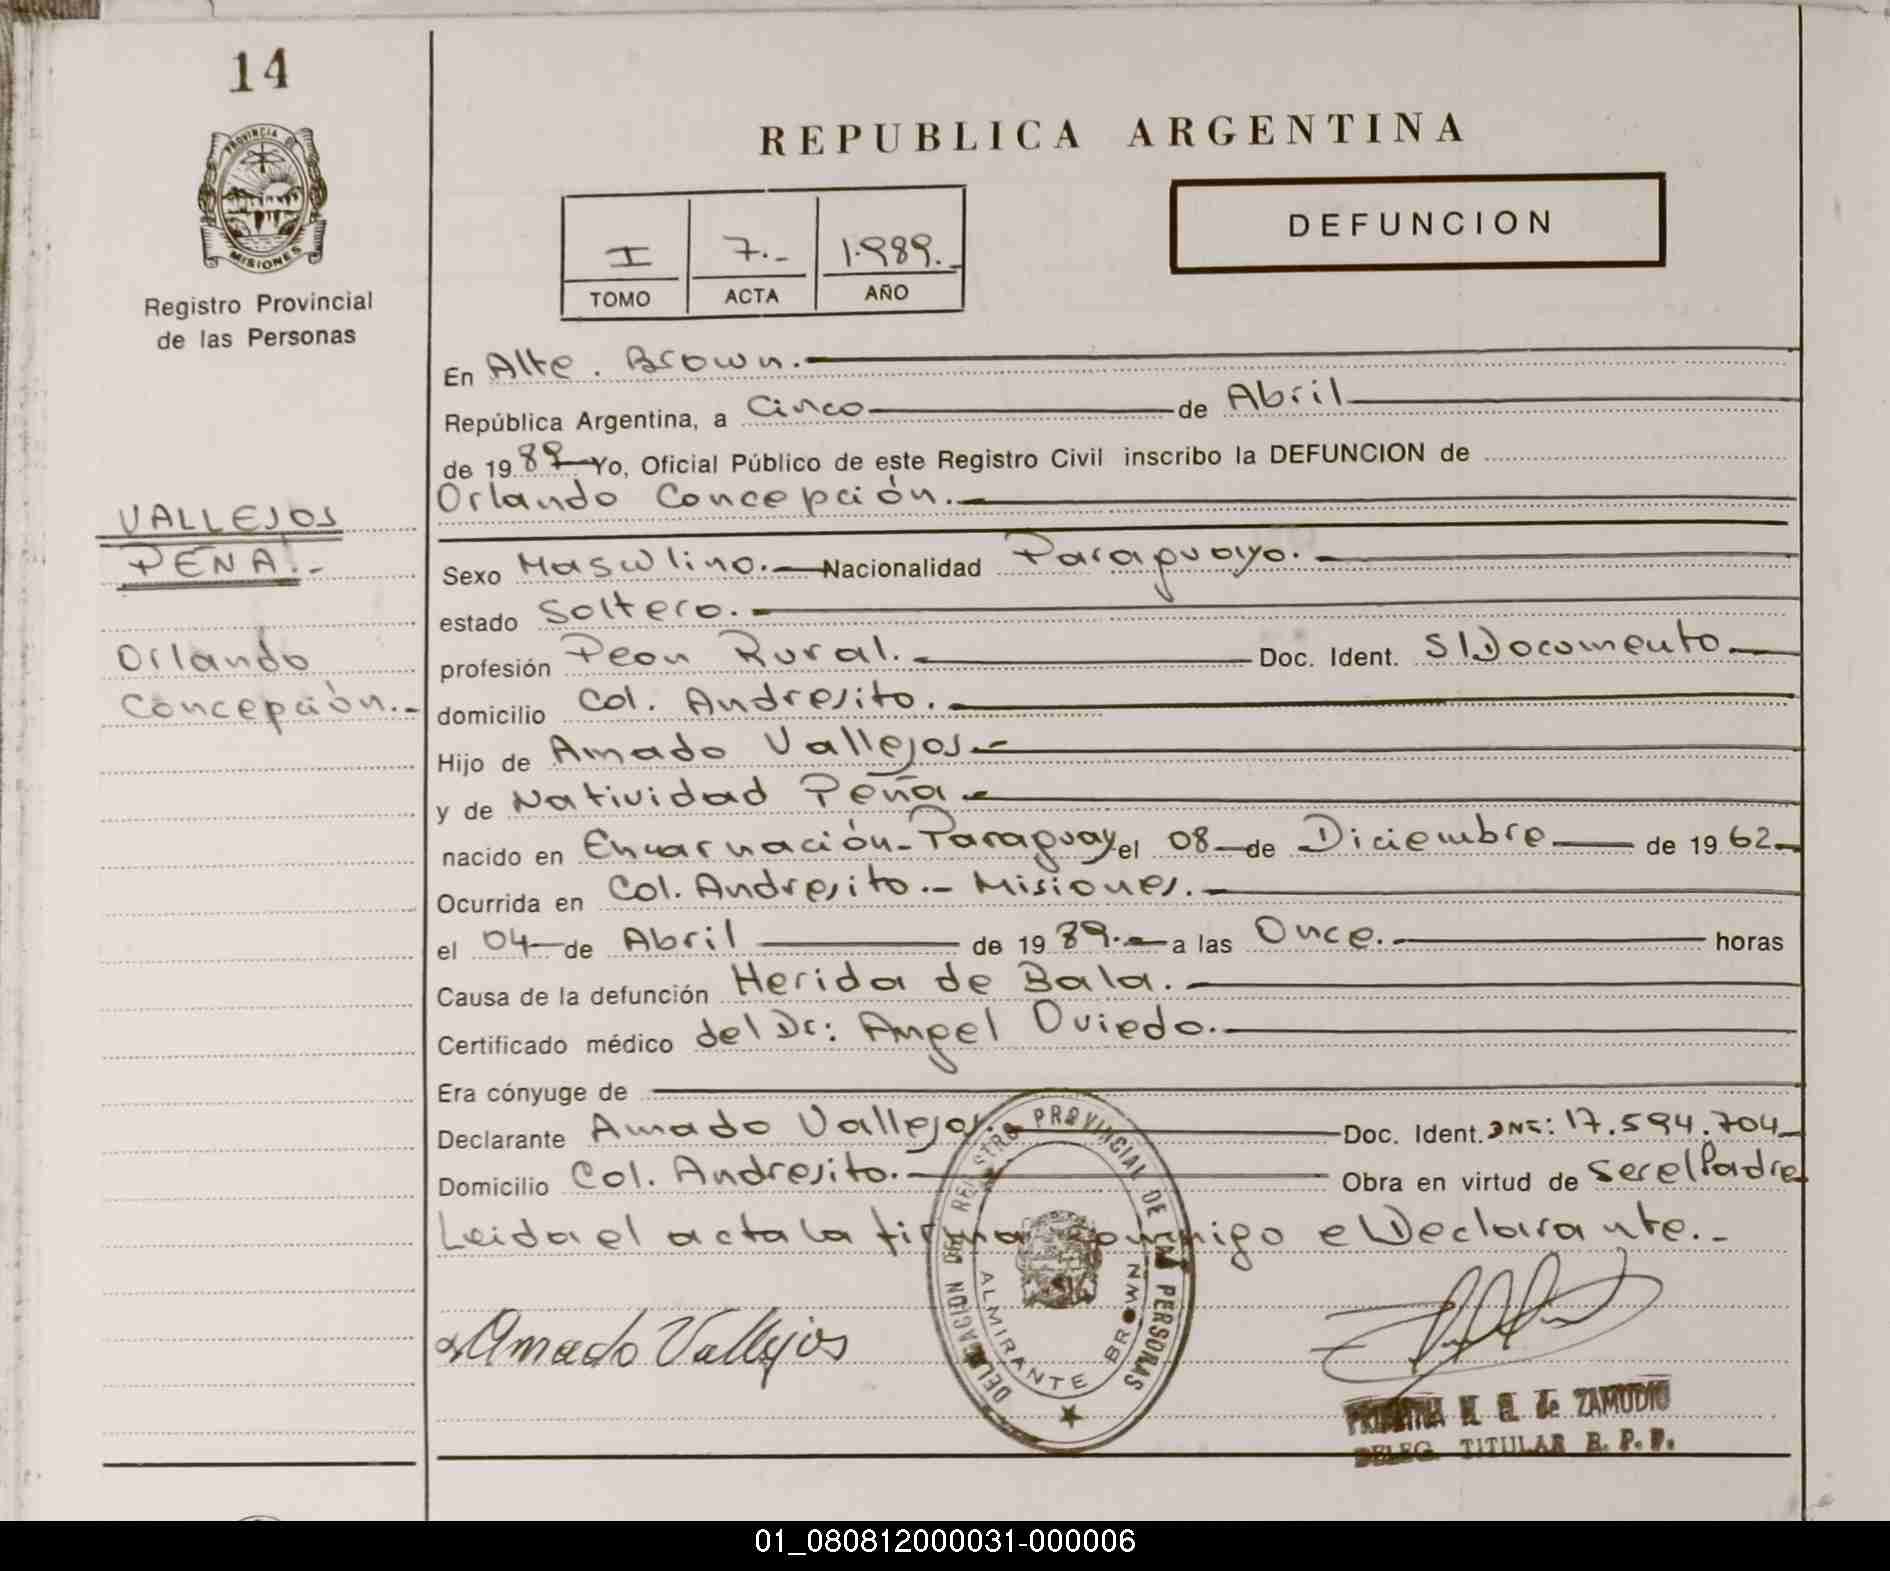 14
PROVINCIA DE
MISIONES
Registro Provincial
de las Personas
REPUBLICA ARGENTINA
DEFUNCION
I 7.- 1.989.-
TOMO ACTA AÑO
En Alte. Brown.
República Argentina, a Cinco de Abril
de 1989 Yo, Oficial Público de este Registro Civil inscribo la DEFUNCION de
Orlando Concepción.
VALLEJOS
PEÑA.-
Orlando
Concepción.-
Sexo Masculino.- Nacionalidad Paraguayo.
estado Soltero.
profesión Peon Rural. Doc. Ident. S/Documento
domicilio Col. Andresito.
Hijo de Amado Vallejos.-
y de Natividad Peña
nacido en Encarnación-Paraguay el 08 de Diciembre de 1962
Ocurrida en Col. Andresito.- Misiones.
el 04 de Abril de 1989.- a las Once. horas
Causa de la defunción Herida de Bala.
Certificado médico del Dr: Angel Oviedo.
Era cónyuge de
Declarante Amado Vallejos. Doc. Ident. DNI: 17.594.704
Domicilio Col. Andresito. Obra en virtud de Ser el Padre
Leida el acta la firma conmigo el Declarante.-
DELEGACION DEL REGISTRO PROVINCIAL DE LAS PERSONAS
ALMIRANTE BROWN
Amado Vallejos
de ZAMUDIO
DELEG. TITULAR R. P. P.
01_080812000031-000006